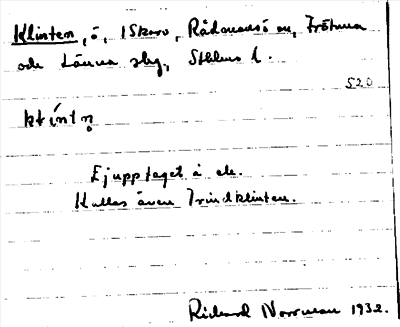 Klinten, ö, i Skoro, Rådmansö sn, Frötuna
och Länna slg, Sthlms l.
520
klíntn̥
Ej upptaget å ek.
Kallas även Trindklinten.
Rickard Norrman 1932.